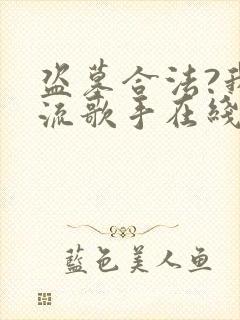 盗墓合法?我
流歌手在綫
藍色美人鱼